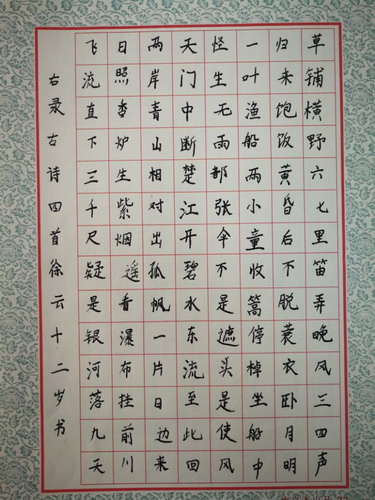 草铺横野六七里笛弄晚风三四声
归来饱饭黄昏后不脱蓑衣卧月明
一叶渔船两小童收篙停棹坐船中
怪生无雨都张伞不是遮头是使风
天门中断楚江开碧水东流至此回
两岸青山相对出孤帆一片日边来
日照香炉生紫烟遥看瀑布挂前川
飞流直下三千尺疑是银河落九天
右录古诗四首徐云十二岁书